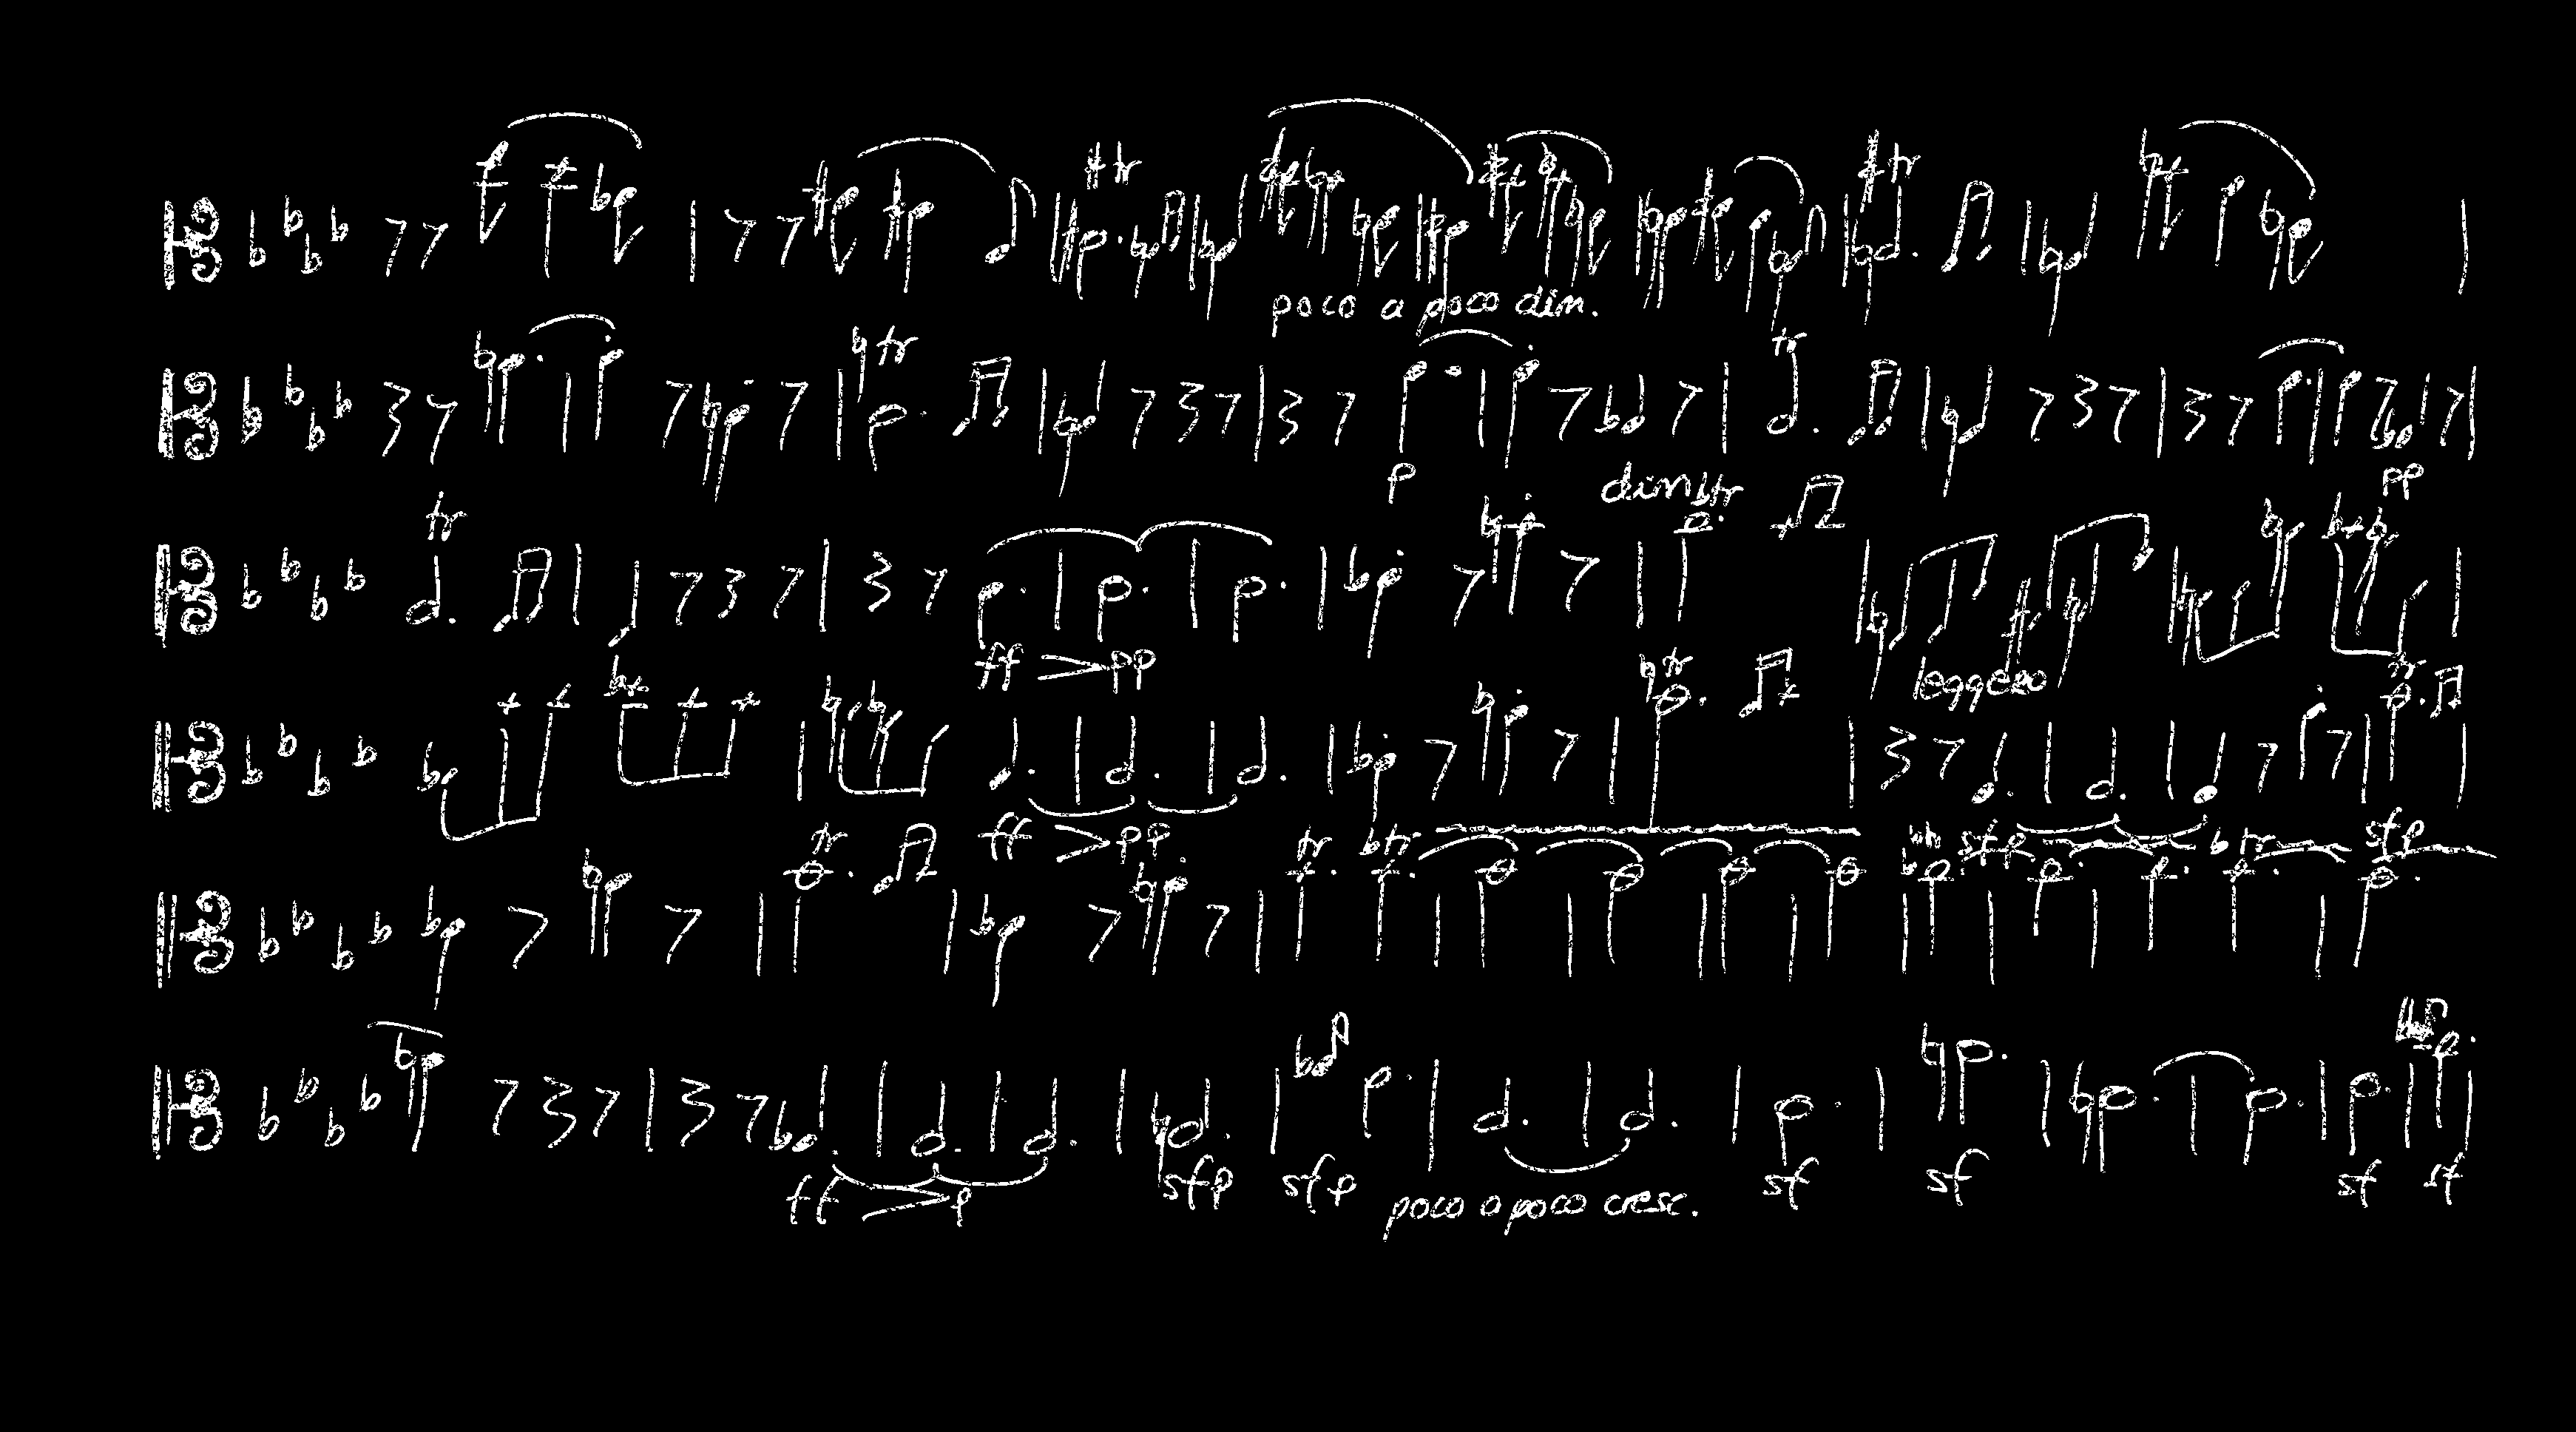 tr tr
poco a poco dim.
tr tr
p dim tr pp
tr
ff pp leggero
tr tr
ff pp sfp sfp
tr tr tr tr tr
ff p sfp sfp poco a poco cresc. sf sf sf sf